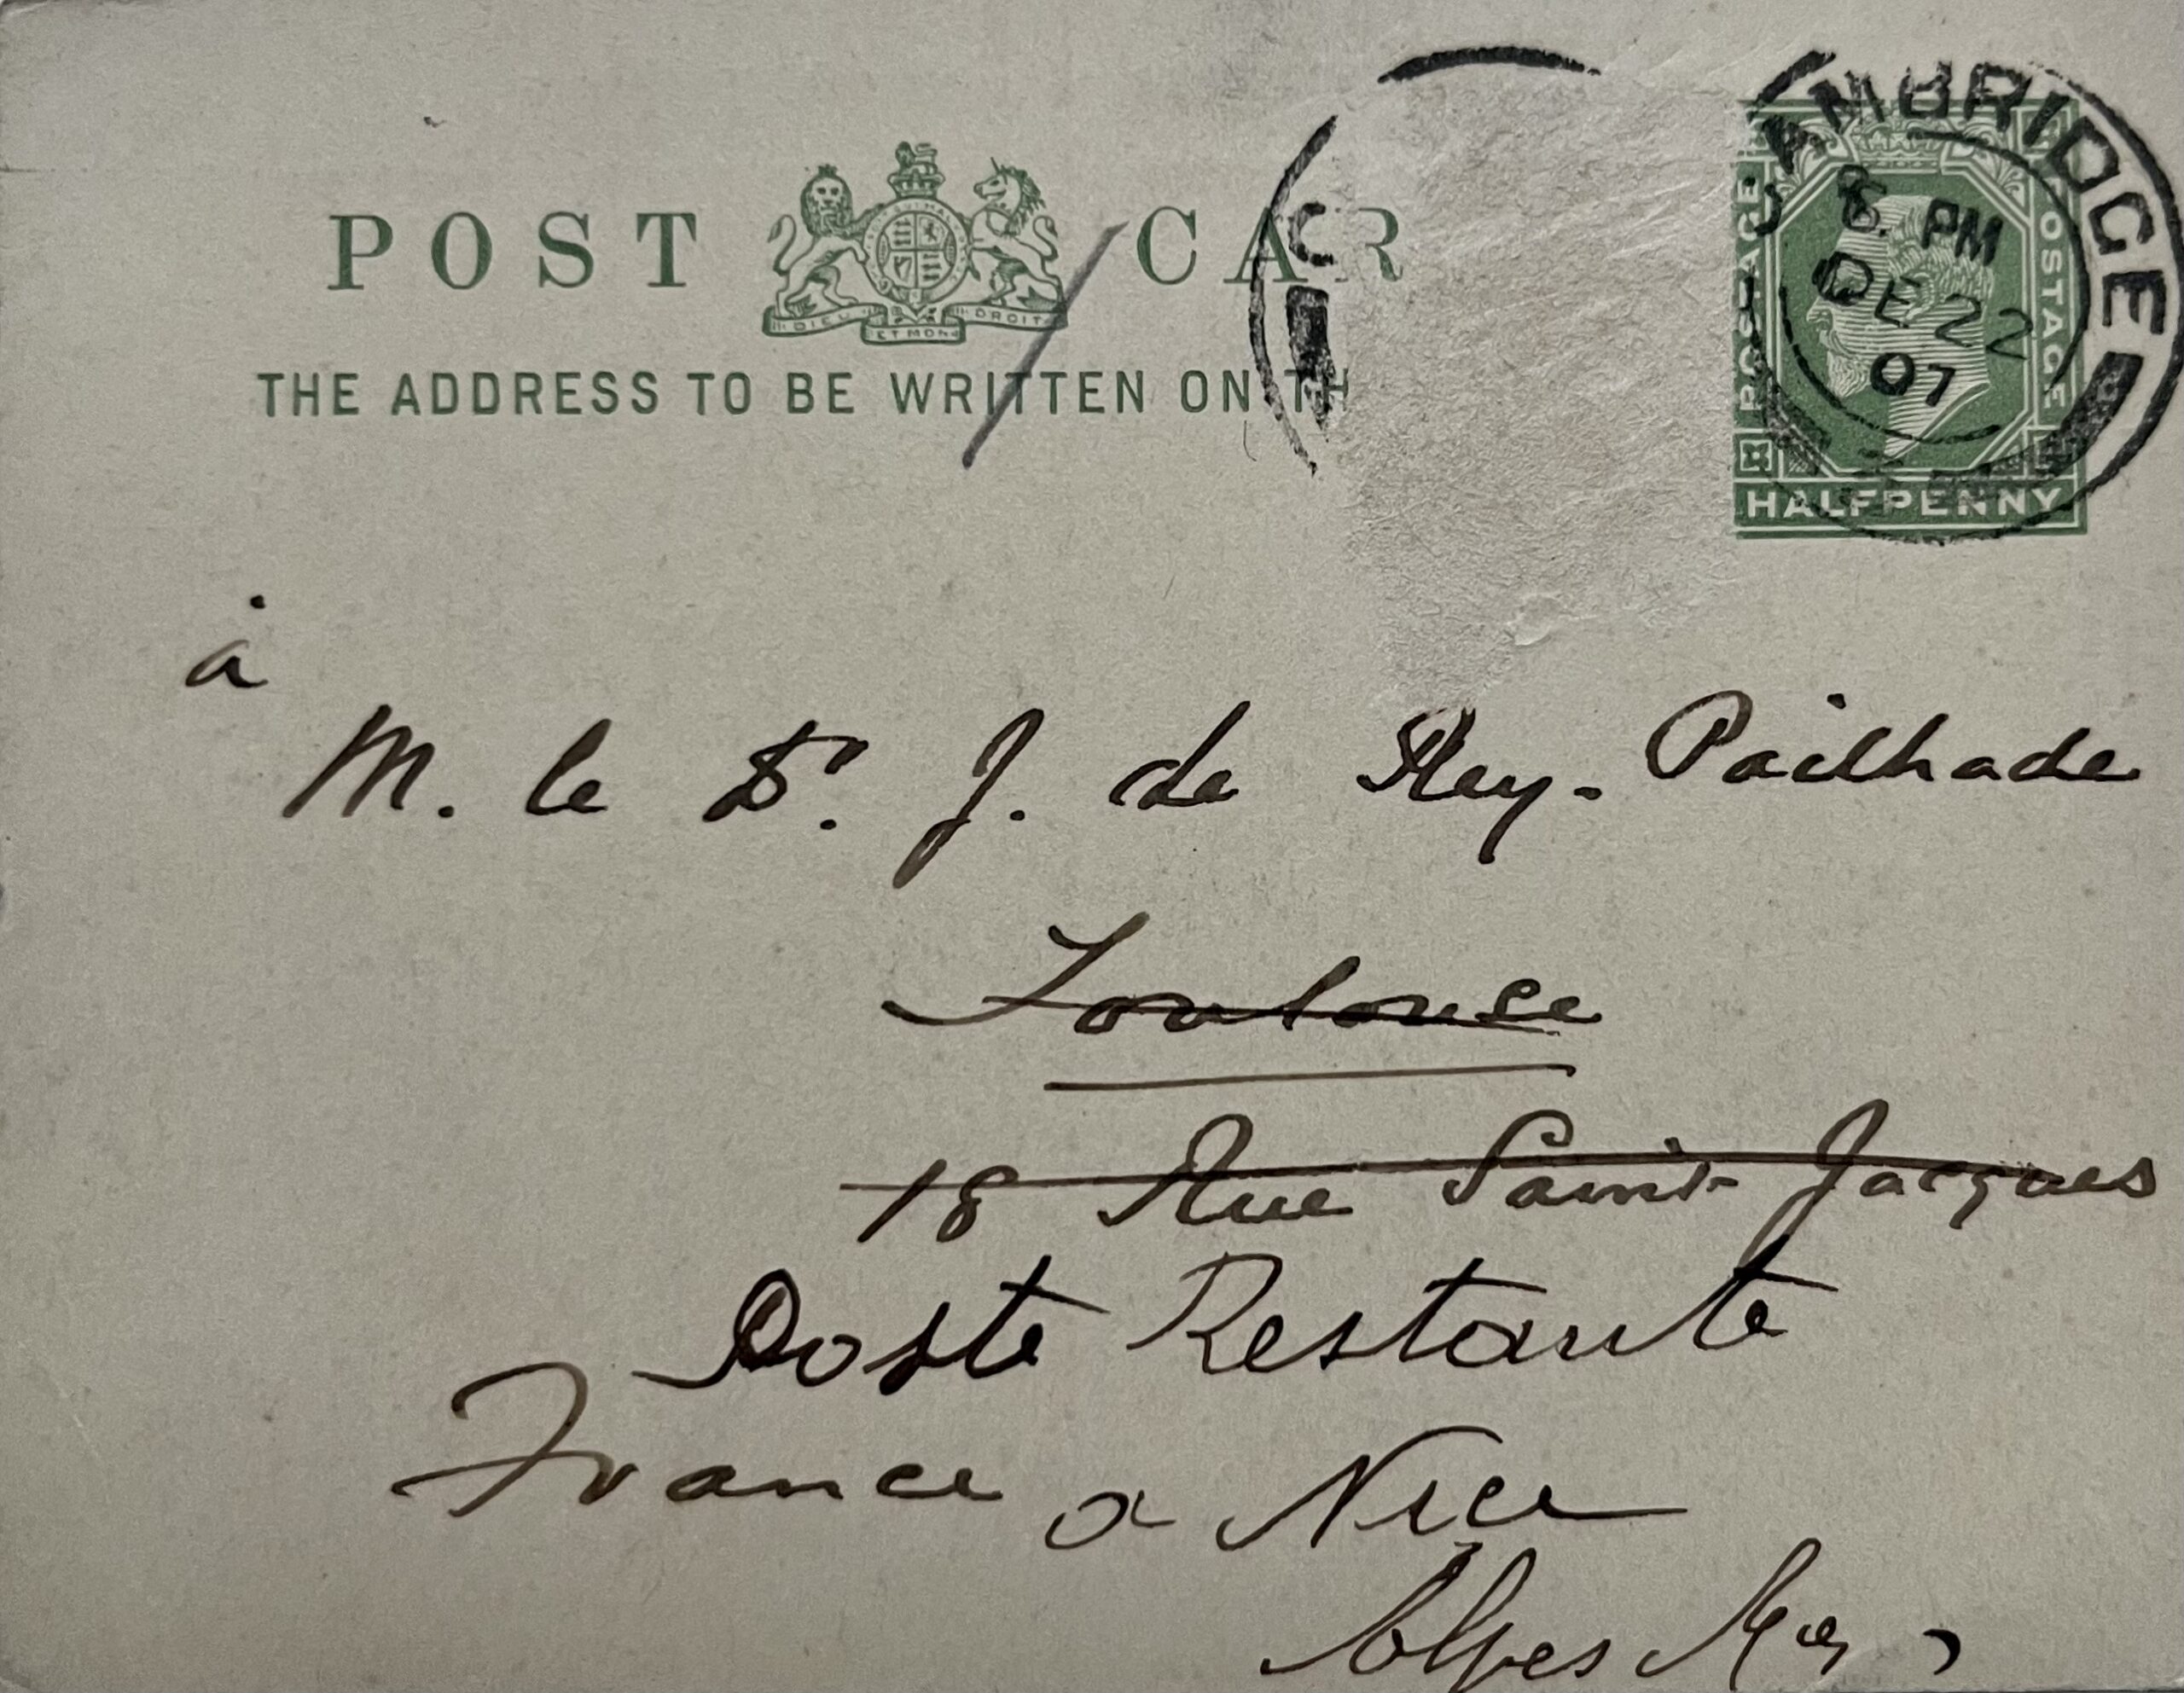 POST CAR
DIEU ET MON DROIT
THE ADDRESS TO BE WRITTEN ON TH
C
CAMBRIDGE
8. PM
DE 22
07
POSTAGE
POSTAGE
HALFPENNY
à
M. le Dr. J. de Rey-Pailhade
Toulouse
18 Rue Saint Jacques
Poste Restante
France
a Nice
Alpes Mes